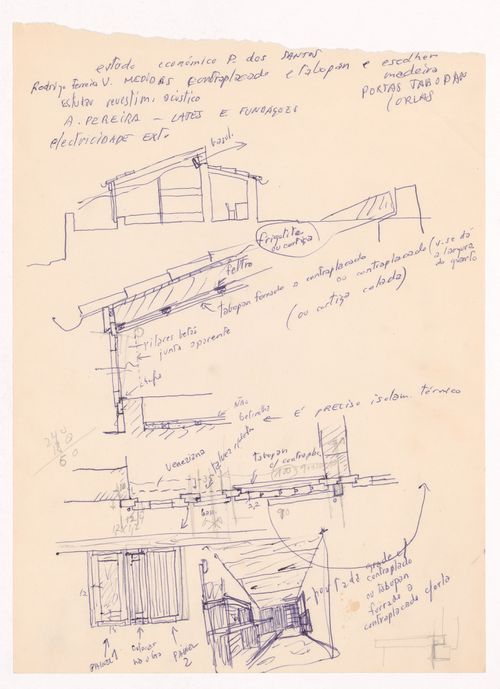 estudo económico P. dos SANTOS
Rodrigo Ferreira V. MEDIDAS contraplacado e tabopan e escolher
madeira
estudar revestim. acústico
PORTAS TABOPAN
(ORLAS
A. PEREIRA — LAJES E FUNDAÇÕES
electricidade ext.
bascul.
frigolite
ou cortiça
feltro
tabopan forrado a contraplacado
ou contraplacado (v. se dá
a largura
do quarto
(ou cortiça colada)
pilares betão
junta aparente
NÃO
betonilha
É PRECISO isolam. térmico
240
60
veneziana
tabopan
c/ contraplac.
2,2
90
porta de grade c/
contraplacado
ou tabopan
forrado a
contraplacado c/orla
12
15
PAINEL
1
PAINEL
2